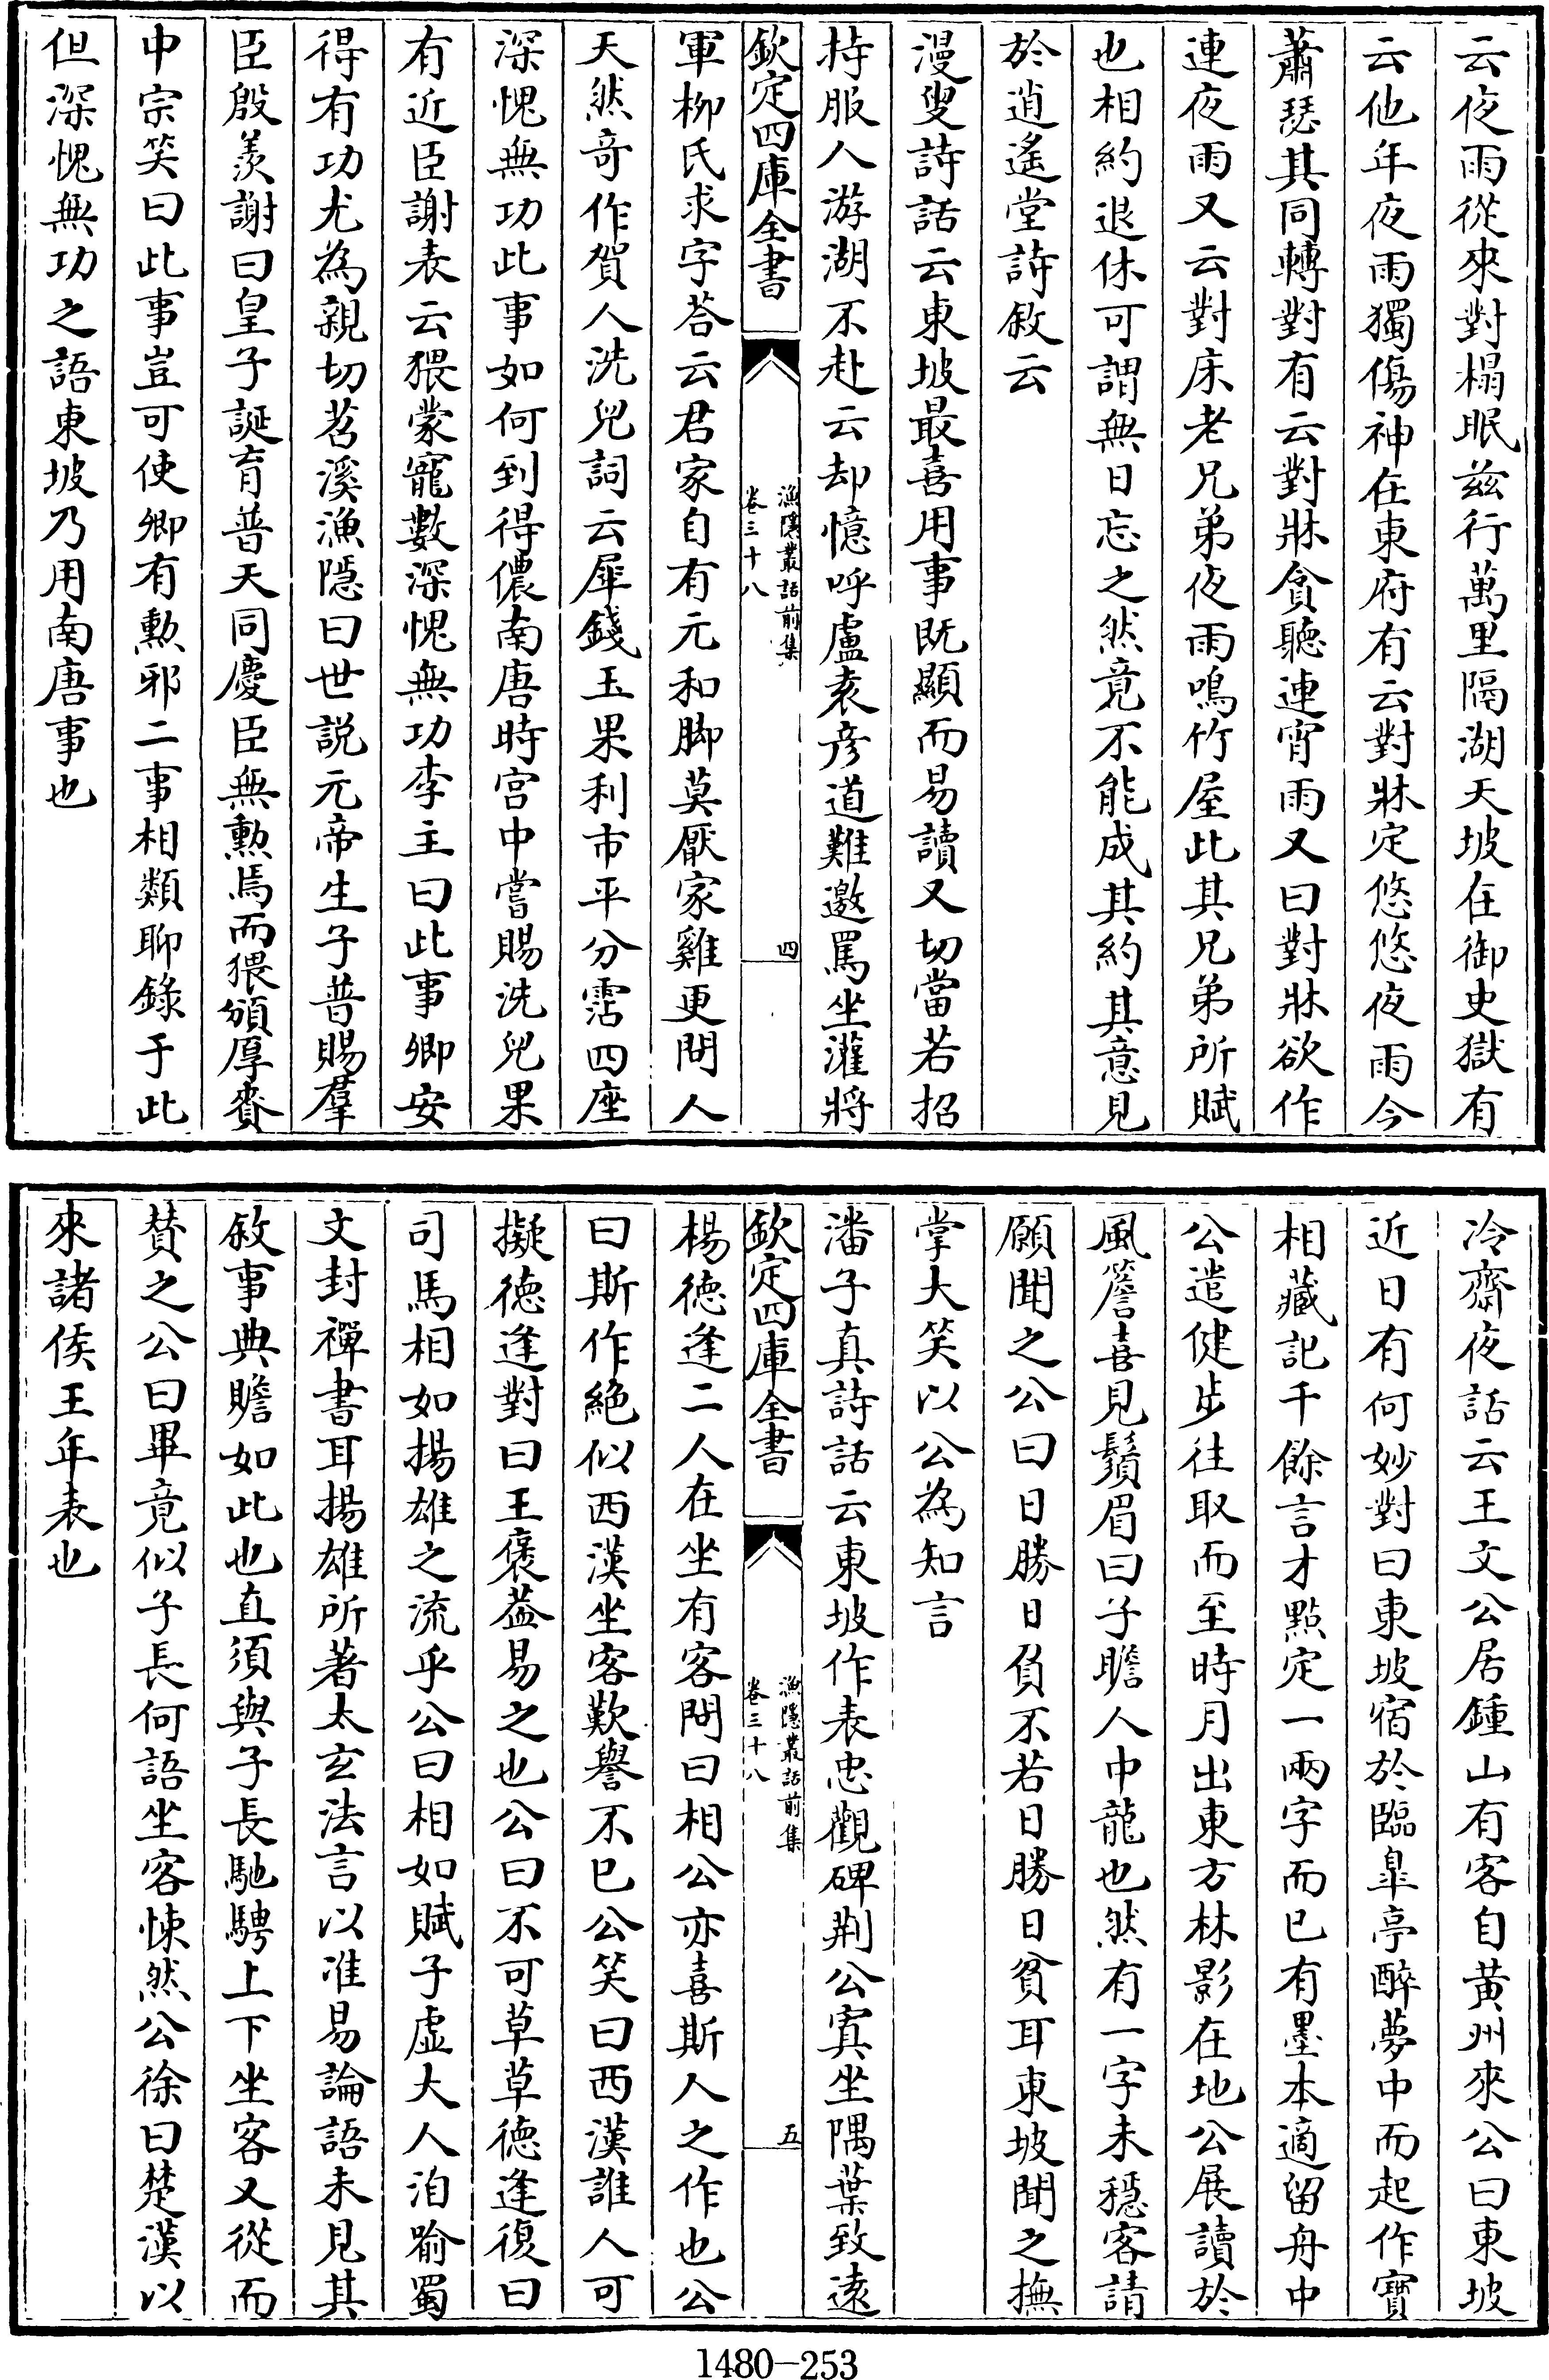 云夜雨從來對榻眠兹行萬里隔湖天坡在御史獄有
云他年夜雨獨傷神在東府有云對牀定悠悠夜雨今
蕭瑟其同轉對有云對牀貪聽連宵雨又曰對牀欲作
連夜雨又云對床老兄弟夜雨鳴竹屋此其兄弟所賦
也相約退休可謂無日忘之然竟不能成其約其意見
於逍遙堂詩敘云
漫叟詩話云東坡最喜用事既顯而易讀又切當若招
持服人游湖不赴云却憶呼盧袁彥道難邀罵坐灌將
欽定四庫全書
漁隱叢話前集
卷三十八
四
軍柳氏求字荅云君家自有元和脚莫厭家雞更問人
天然奇作賀人洗兒詞云犀錢玉果利市平分霑四座
深愧無功此事如何到得儂南唐時宮中嘗賜洗兒果
有近臣謝表云猥蒙寵數深愧無功李主曰此事卿安
得有功尤為親切苕溪漁隱曰世說元帝生子普賜羣
臣殷羨謝曰皇子誕育普天同慶臣無勲焉而猥頒厚賚
中宗笑曰此事豈可使卿有勲邪二事相類聊錄于此
但深愧無功之語東坡乃用南唐事也
冷齋夜話云王文公居鍾山有客自黃州來公曰東坡
近日有何妙對曰東坡宿於臨臯亭醉夢中而起作寶
相藏記千餘言才點定一兩字而已有墨本適留舟中
公遣健步往取而至時月出東方林影在地公展讀於
風簷喜見鬚眉曰子瞻人中龍也然有一字未穩客請
願聞之公曰日勝日負不若日勝日貧耳東坡聞之撫
掌大笑以公為知言
潘子真詩話云東坡作表忠觀碑荆公寘坐隅葉致遠
欽定四庫全書
漁隱叢話前集
卷三十八
五
楊德逢二人在坐有客問曰相公亦喜斯人之作也公
曰斯作絕似西漢坐客歎譽不已公笑曰西漢誰人可
擬德逢對曰王褒葢易之也公曰不可草草德逢復曰
司馬相如揚雄之流乎公曰相如賦子虛大人洎喻蜀
文封禪書耳揚雄所著太玄法言以准易論語未見其
敘事典贍如此也直須與子長馳騁上下坐客又從而
賛之公曰畢竟似子長何語坐客悚然公徐曰楚漢以
來諸侯王年表也
1480-253